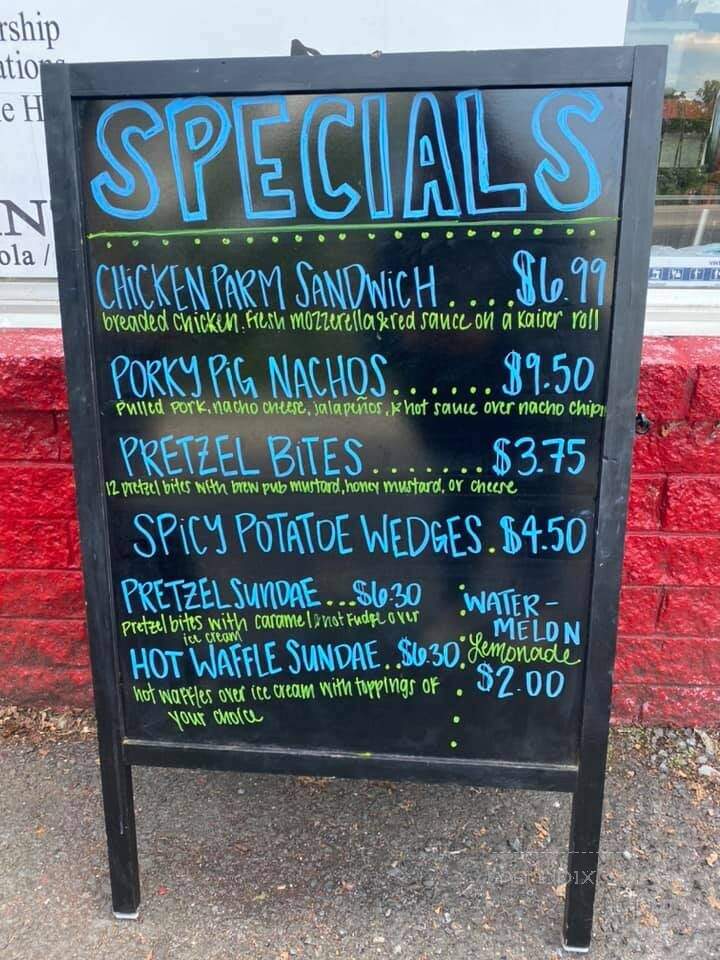 rship
ation
e H
N
ola /
SPECIALS
CHICKEN PARM SANDWICH .... $6.99
breaded chicken, fresh mozzerella & red sauce on a kaiser roll
PORKY PIG NACHOS...... $9.50
Pulled pork, nacho cheese, jalapeños, & hot sauce over nacho chips
PRETZEL BITES ....... $3.75
12 pretzel bites with brew pub mustard, honey mustard, or cheese
SPICY POTATOE WEDGES. $4.50
PRETZEL SUNDAE ...$6.30
Pretzel bites with caramel & hot fudge over
ice cream
HOT WAFFLE SUNDAE..$6.30
hot waffles over ice cream with toppings of
your choice
WATER-
MELON
Lemonade
$2.00